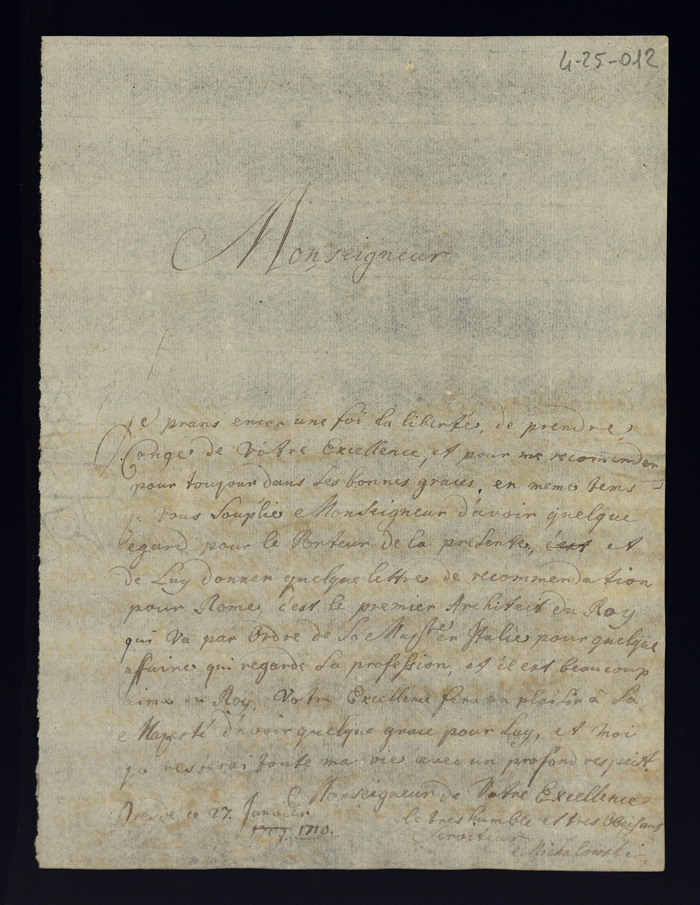 4-25-012
Monseigneur
Je prans encor une foi la liberté, de prendre
Conge de Votre Excellence, et pour me recommender
pour toujour dans ses bonnes graces, en meme tems
je Vous Souplie Monseigneur d'avoir quelque
egard pour le Porteur de la presente, c'est et
de Luy donner quelque lettre de recommendation
pour Rome, c'est le premier Architect du Roy
qui va par Ordre de Sa Majste en Italie pour quelque
affaire qui regarde Sa profession, et il est beaucoup
aimé du Roy, Votre Excellence fera un plaisir à Sa
Majesté d'avoir quelque grace pour Luy, et moi
je resterai toute ma vie avec un profond respect.
Monseigneur de Votre Excellence
Dresde ce 27. Janvier
le tres humble et tres Obeisant
1710.
Serviteur